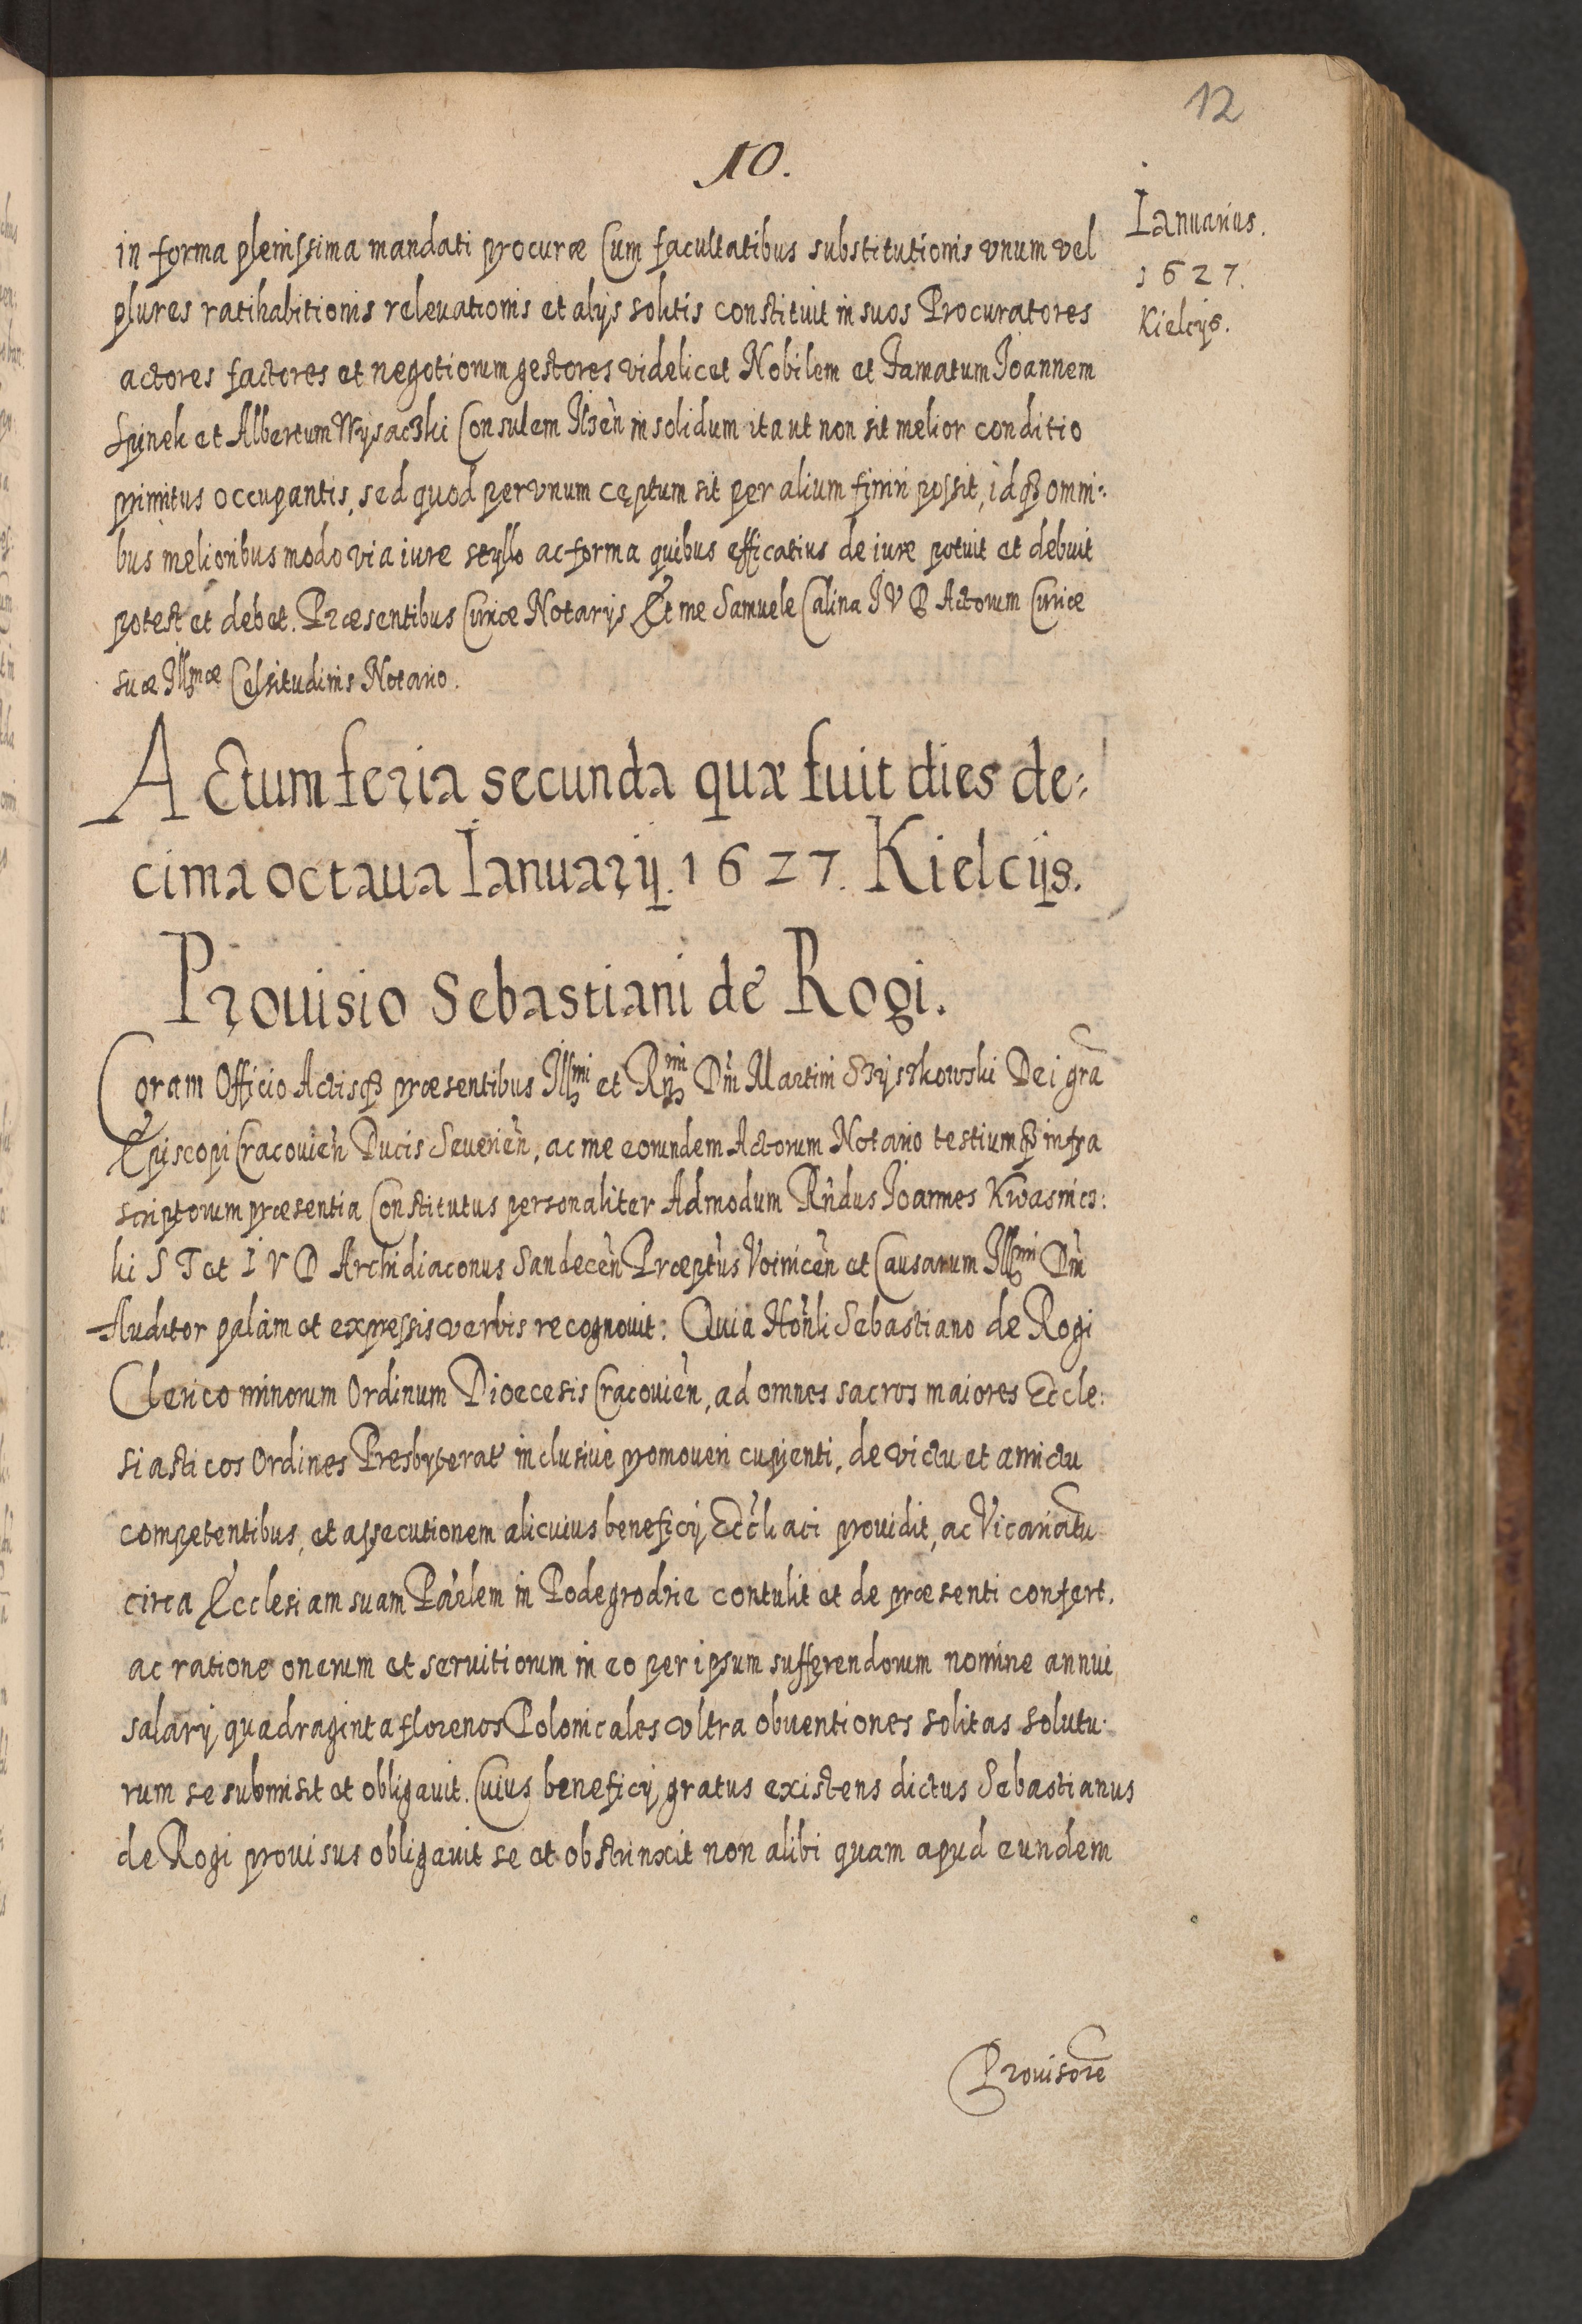 12
10.
Ianuarius.
1627.
Kielcijs.
in forma plenissima mandati procuræ Cum facultatibus substitutionis vnum vel
plures ratihabitionis releuationis et alijs solitis constituit in suos Procuratores
actores factores et negotiorum gestores videlicet Nobilem et Famatum Ioannem
et Albertum Consulem Ilsen̄ in solidum ita ut non sit melior conditio
primitus occupantis, sed quod per vnum cęptum sit per alium finiri possit, idqȝ omni:
bus melioribus modo via iure stylo ac forma quibus efficatius de iure potuit et debuit
potest et debet. Præsentibus Curiæ Notarijs Et me Samuele Calina I V D Actorum Curiæ
suæ Illmæ Celsitudinis Notario.
Actum feria secunda quæ fuit dies de:
cima octaua Ianuarij. 1627. Kielcijs.
Prouisio Sebastiani de Rogi.
Coram Officio Actisqȝ præsentibus Illmi et Rmi Dn̄i Martini Szyszkowski Dei gr̄a
Episcopi Cracouien̄ Ducis Seuerien̄, ac me eorundem Actorum Notario testiumqȝ infra
scriptorum præsentia Constitutus personaliter Admodum Rn̄dus Ioannes Kwasnics:
ki S T et I V D Archidiaconus Sandecen̄ Præptus Voinicen̄ et Causarum Illmi Dn̄i
Auditor palam et expressis verbis recognouit: Quia Hon̄li Sebastiano de Rogi
Clerico minorum Ordinum Dioecesis Cracouien̄, ad omnes sacros maiores Eccle:
siasticos Ordines Presbyterat' inclusiue promoueri cupienti, de victu et amictu
competentibus, et assecutionem alicuius beneficij Eccl̄iaci prouidit, ac Vicariatū
circa Ecclesiam suam Par̄lem in Podegrodzie contulit et de præsenti confert.
ac ratione onerum et seruitiorum in eo per ipsum sufferendorum nomine annui
salarij quadraginta florenos Polonicales vltra obuentiones solitas solutu:
rum se submisit et obligauit. Cuius beneficij gratus existens dictus Sebastianus
de Rogi prouisus obligauit se et obstrinxit non alibi quam apud eundem
Prouisorē